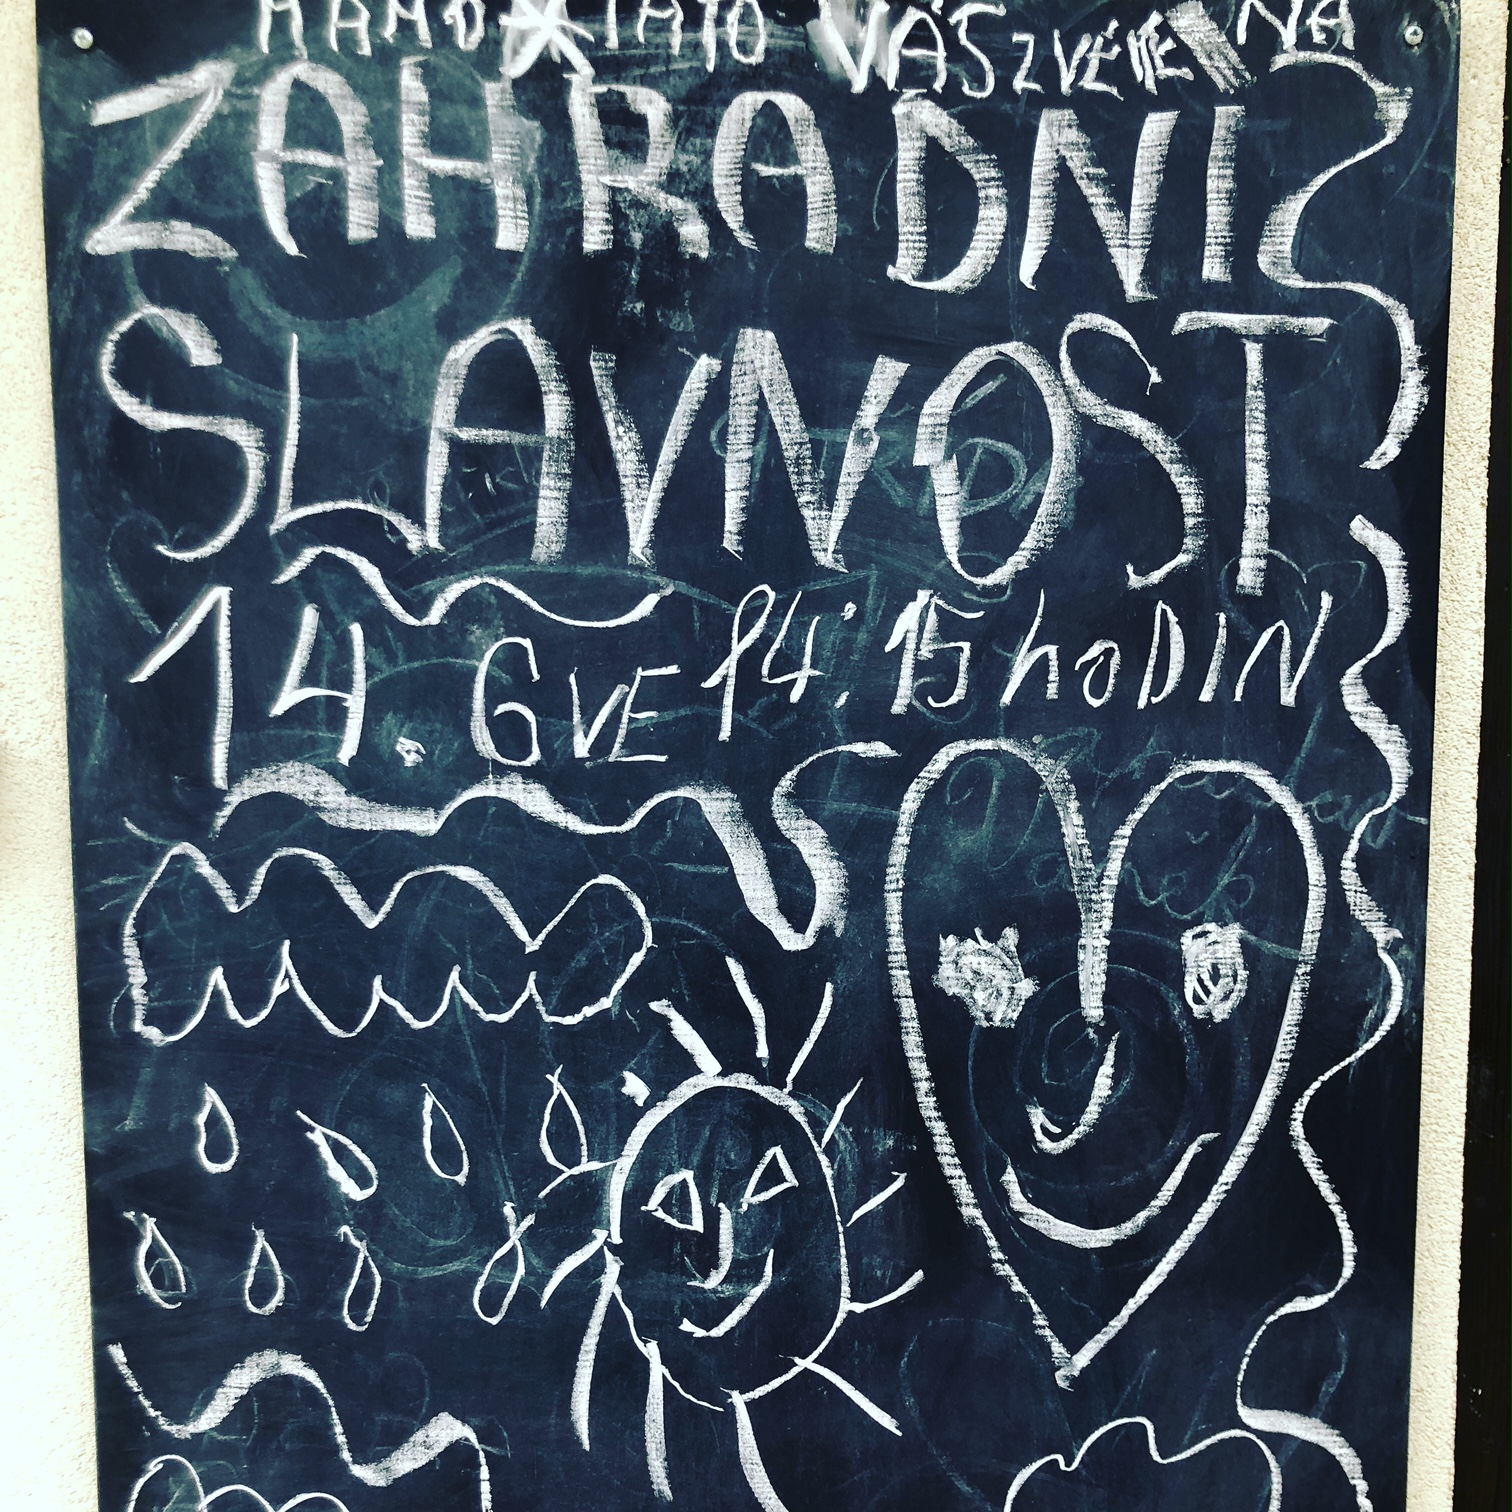 MAMO TATO VÁS ZVEME NA
ZAHRADNI
SLAVNOST
14. 6 VE 14:15 hODIN